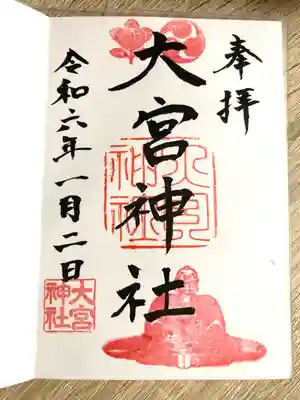 奉拝
大宮神社
大宮神社
令和六年一月二日
大宮神社